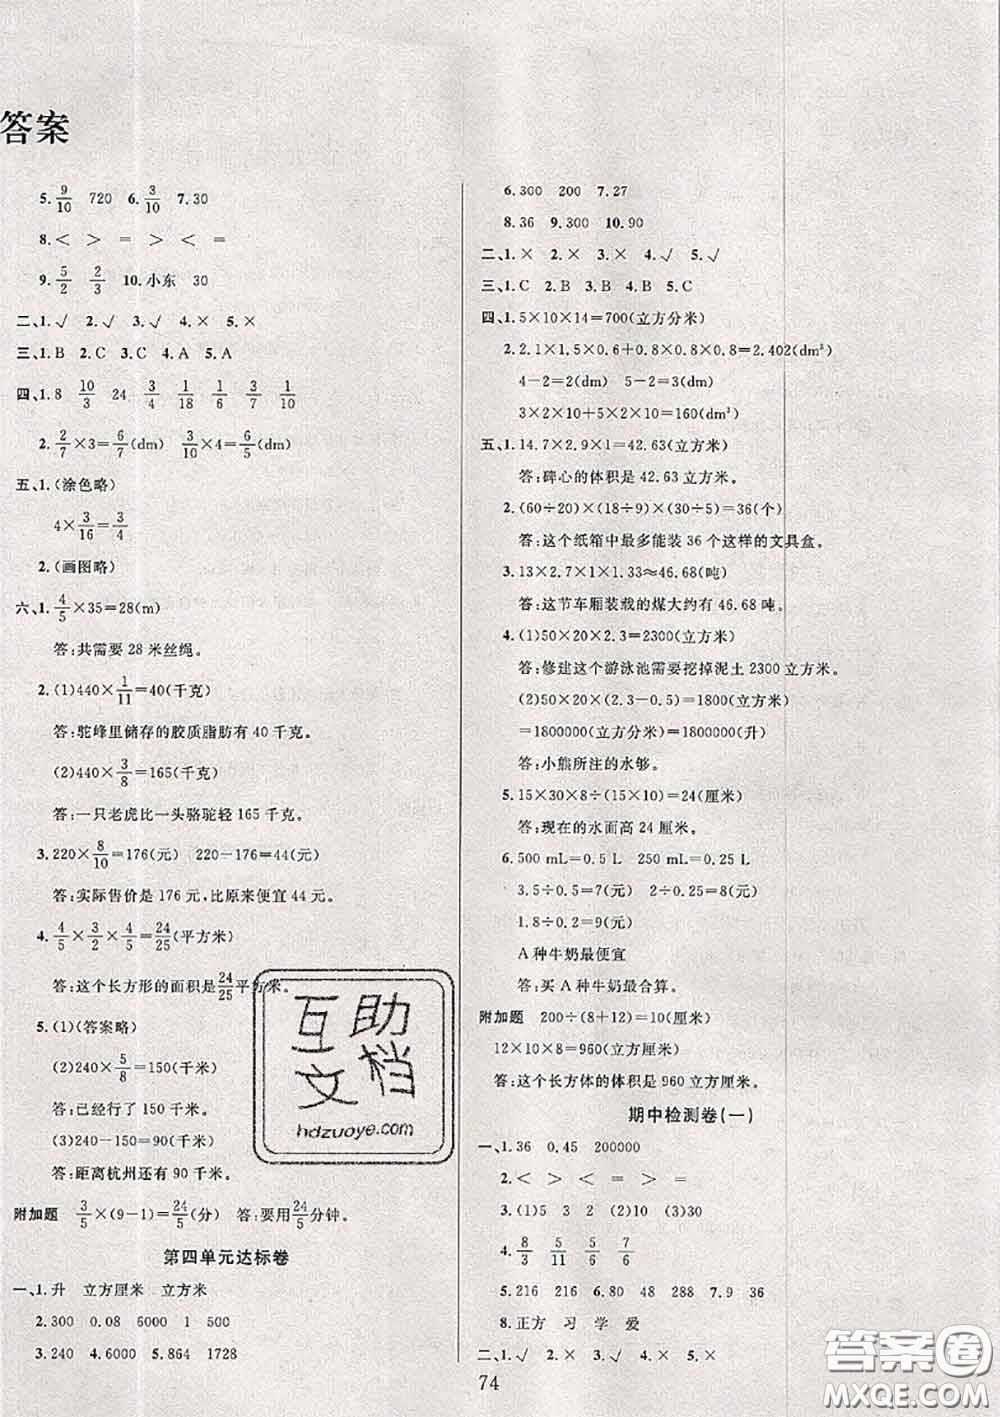 答案
5. 9/10 720 6. 3/10 7.30
8.< > = > < =
9. 5/2 2/3 10.小东 30
二、1.√ 2.√ 3.√ 4.× 5.×
三、1.B 2.C 3.C 4.A 5.A
四、1.8 10/3 24 3/4 1/18 1/6 3/7 1/10
2. 2/7×3=6/7(dm) 3/10×4=6/5(dm)
五、1.(涂色略)
4×3/16=3/4
2.(画图略)
六、1. 4/5×35=28(m)
答:共需要 28 米丝绳。
2.(1)440×1/11=40(千克)
答:驼峰里储存的胶质脂肪有 40 千克。
(2)440×3/8=165(千克)
答:一只老虎比一头骆驼轻 165 千克。
3.220×8/10=176(元) 220-176=44(元)
答:实际售价是 176 元,比原来便宜 44 元。
4. 4/5×3/2×4/5=24/25(平方米)
答:这个长方形的面积是24/25平方米。
5.(1)(答案略)
(2)240×5/8=150(千米)
答:已经行了 150 千米。
(3)240-150=90(千米)
答:距离杭州还有 90 千米。
附加题 3/5×(9-1)=24/5(分) 答:要用24/5分钟。
第四单元达标卷
一、1.升 立方厘米 立方米
2.300 0.08 6000 1 500
3.240 4.6000 5.864 1728
6.300 200 7.27
8.36 9.300 10.90
二、1.× 2.× 3.× 4.√ 5.√
三、1.C 2.B 3.C 4.B 5.C
四、1.5×10×14=700(立方分米)
2.2.1×1.5×0.6+0.8×0.8×0.8=2.402(dm³)
4-2=2(dm) 5-2=3(dm)
3×2×10+5×2×10=160(dm³)
五、1.14.7×2.9×1=42.63(立方米)
答:碑心的体积是 42.63 立方米。
2.(60÷20)×(18÷9)×(30÷5)=36(个)
答:这个纸箱中最多能装 36 个这样的文具盒。
3.13×2.7×1×1.33≈46.68(吨)
答:这节车厢装载的煤大约有 46.68 吨。
4.(1)50×20×2.3=2300(立方米)
答:修建这个游泳池需要挖掉泥土 2300 立方米。
(2)50×20×(2.3-0.5)=1800(立方米)
=1800000(立方分米)=1800000(升)
答:小熊所注的水够。
5.15×30×8÷(15×10)=24(厘米)
答:现在的水面高 24 厘米。
6.500 mL=0.5 L 250 mL=0.25 L
3.5÷0.5=7(元) 2÷0.25=8(元)
1.8÷0.2=9(元)
A 种牛奶最便宜
答:买 A 种牛奶最合算。
附加题 200÷(8+12)=10(厘米)
12×10×8=960(立方厘米)
答:这个长方体的体积是 960 立方厘米。
期中检测卷(一)
一、1.36 0.45 200000
2.< < > = = =
3.(1)5 3 (2)10 (3)2
4. 8/3 5/11 5/6 7/6
5.216 216 6.80 48 288 7.9 36
8.正方 习 学 爱
二、1.√ 2.√ 3.× 4.√ 5.×
74
互助
文档
hdzuoye.com
答案圈
MXQE.COM